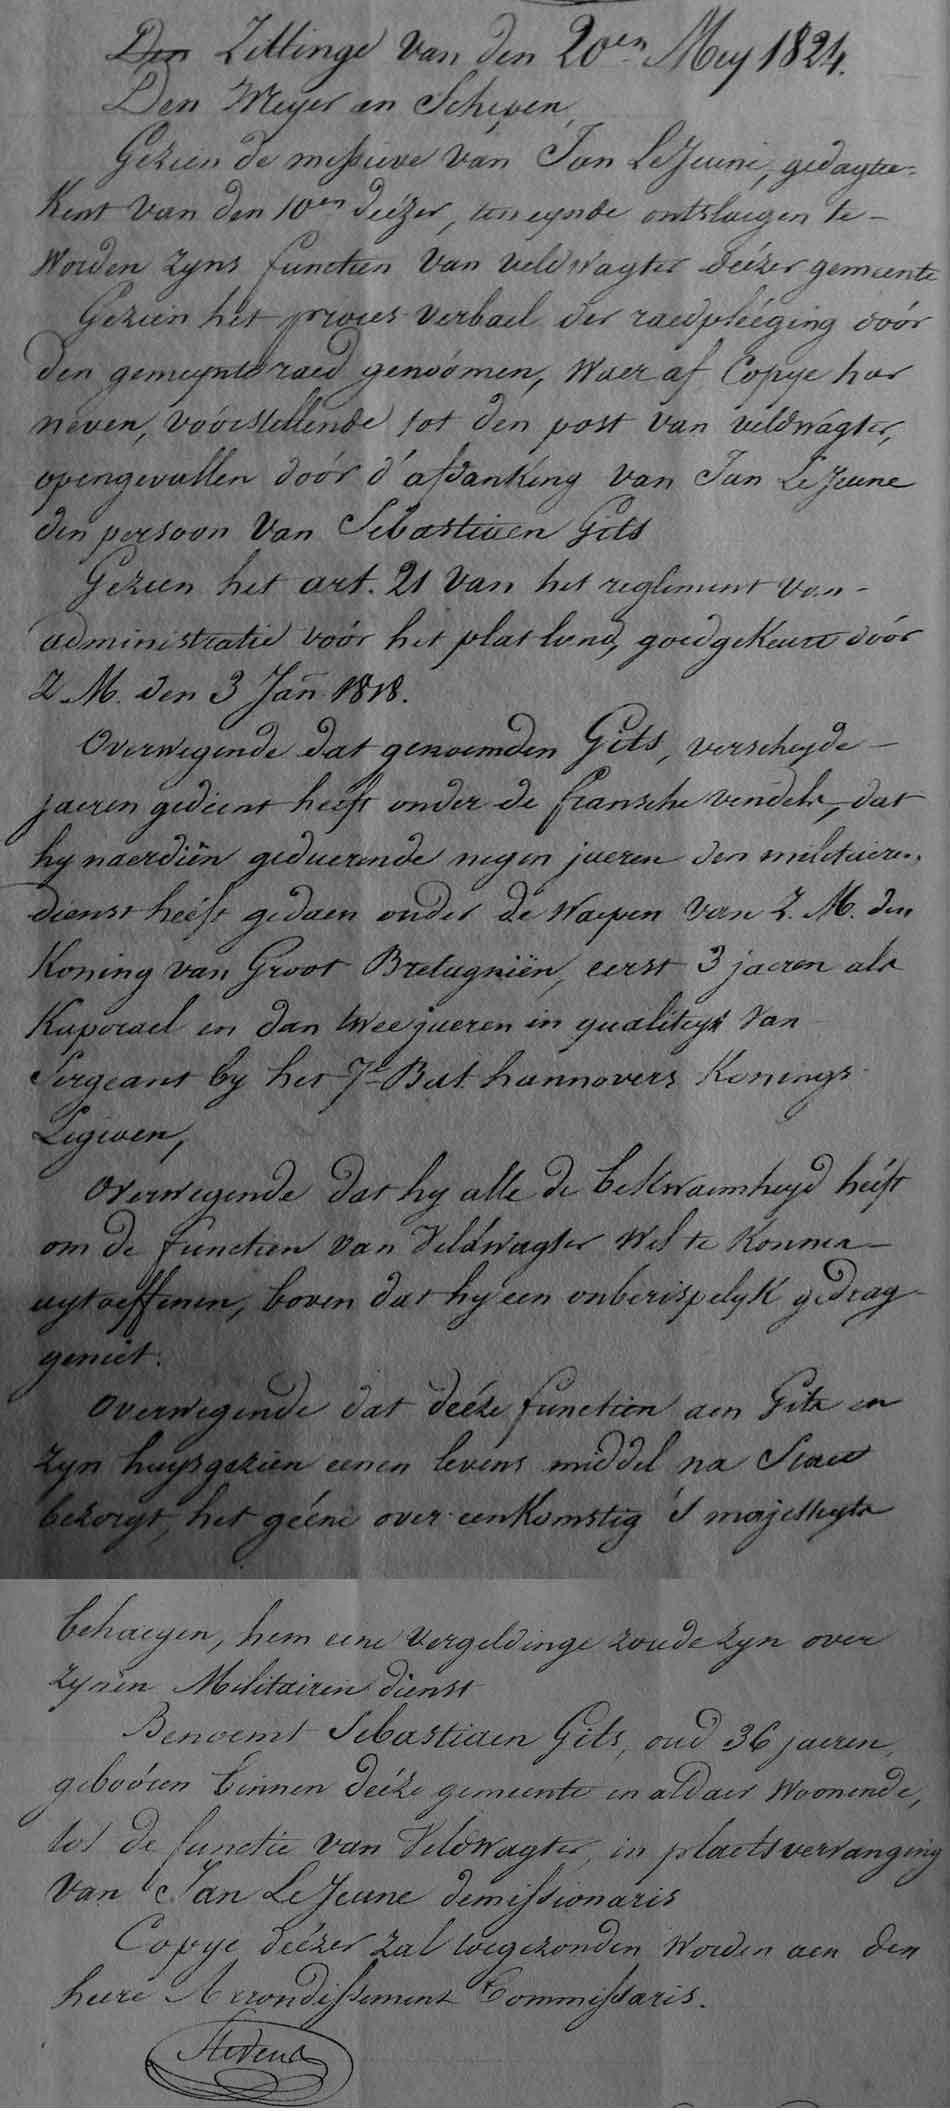 Den Zittinge van den 20en Mey 1824.
Den Meyer en Schepen,
Gezien de messieve van Jan LeJeune, gedagtee-
kent van den 10en deézer, ten eynde ontslaegen te-
worden zyns functien van veldwagter deézer gemeente
Gezien het proces verbael der raedpleéging doór
den gemeynte raed genoómen, waer af Copye hier
neven, voórstellende tot den post van veldwagter,
opengevallen doór d'afdanking van Jan LeJeune
den persoon van Sebastiaen Gits
Gezien het art. 21 van het reglement van-
administratie voór het plat land, goedgekeurd doór
Z. M. den 3 Jan 1818.
Overwegende dat genoemden Gits, verscheyde-
jaeren gedient heeft onder de fransche vendels, dat
hy naerdiën geduerende negen jaeren den militairen
dienst heéft gedaen onder de Waepen van Z. M. den
Koning van Groot Bretagniën, eerst 3 jaeren als
Kaporael en dan twee jaeren in qualiteyt van
Sergeant by het 7e Bat. hannovers Konings
Legioen,
Overwegende dat hy alle de bekwaemheyd heéft
om de functien van Veldwagter wel te konnen-
uytoeffenen, boven dat hy een onberispelyk gedrag-
geniet.
Overwegende dat deéze function aen Gits en
zyn huysgezien eenen levens middel na Staet
bezorgt, het geéne over eenkomstig 's majesteyts
behaegen, hem eene vergeldinge zoude zyn over
zynen Militairen dienst
Benoemt Sebastiaen Gits, oud 36 jaeren,
geboóren binnen deéze gemeente en aldaer woonende,
tot de functie van Veldwagter, in plaetsvervanging
van Jan LeJeune demissionaris
Copye deézer zal toegezonden worden aen den
heere Arrondissement Commissaris.
Stevens